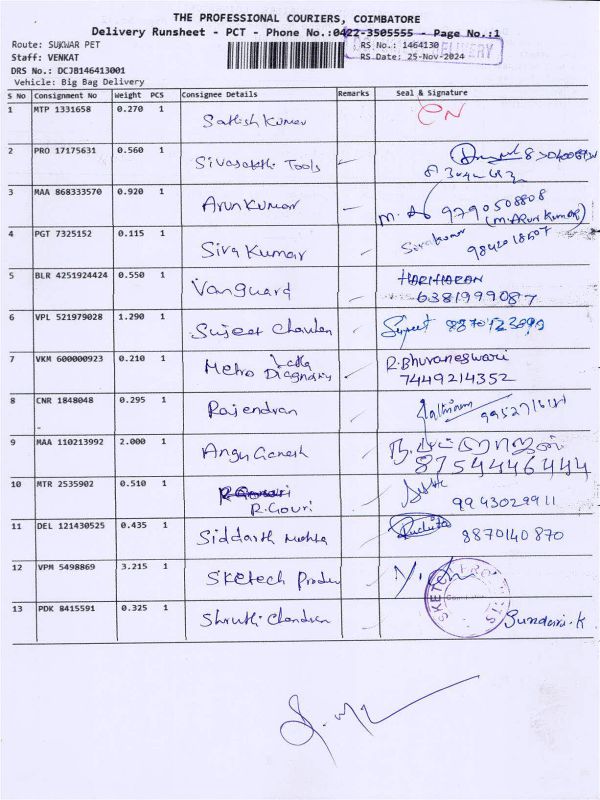 THE PROFESSIONAL COURIERS, COIMBATORE
Delivery Runsheet - PCT - Phone No.:0422-3505555 - Page No.:1
Route: SUKWAR PET
RS No.: 1464130
Staff: VENKAT
RS Date: 25-Nov-2024
DRS No.: DCJB146413001
Vehicle: Big Bag Delivery
S No Consignment No Weight PCS Consignee Details Remarks Seal & Signature
1 MTP 1331658 0.270 1 Satish Kumar
2 PRO 17175631 0.560 1 Sivasakthi Tools
3 MAA 868333570 0.920 1 Arun Kumar 9790508808
(M.Arun Kumar)
4 PGT 7325152 0.115 1 Siva Kumar Sivakumar
5 BLR 4251924424 0.550 1 Vanguard HARIHARAN
6381999087
6 VPL 521979028 1.290 1 Sujeet Chouhan Sujeet
7 VKM 600000923 0.210 1 Metro R.Bhuvaneswari
7449214352
8 CNR 1848048 0.295 1 Rajendran
-
9 MAA 110213992 2.000 1 Angu Ganesh
8754446444
10 MTR 2535902 0.510 1
R.Gouri 9943029911
11 DEL 121430525 0.435 1 Siddarth Mehta Ruchita 8870140870
12 VPM 5498869 3.215 1 SKetech
13 PDK 8415591 0.325 1 Shruthi Chandran Sundari.K